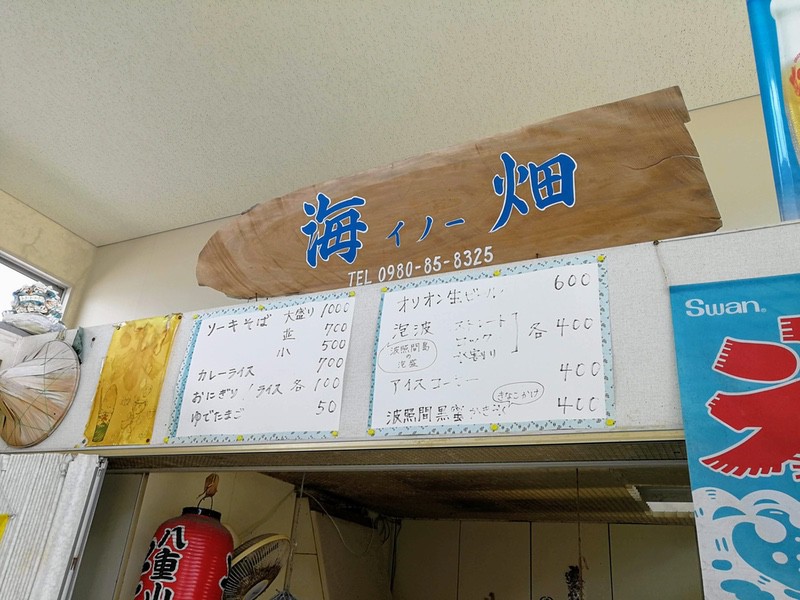 海 イノー 畑
TEL 0980-85-8325
ソーキそば 大盛り 1000
並 700
小 500
カレーライス 700
おにぎり/ライス 各 100
ゆでたまご 50
オリオン生ビール 600
泡波 ストレート
ロック
水割り
各 400
波照間島
の
泡盛
アイスコーヒー 400
きなこかけ
波照間黒蜜かき氷 400
Swan®
八重山